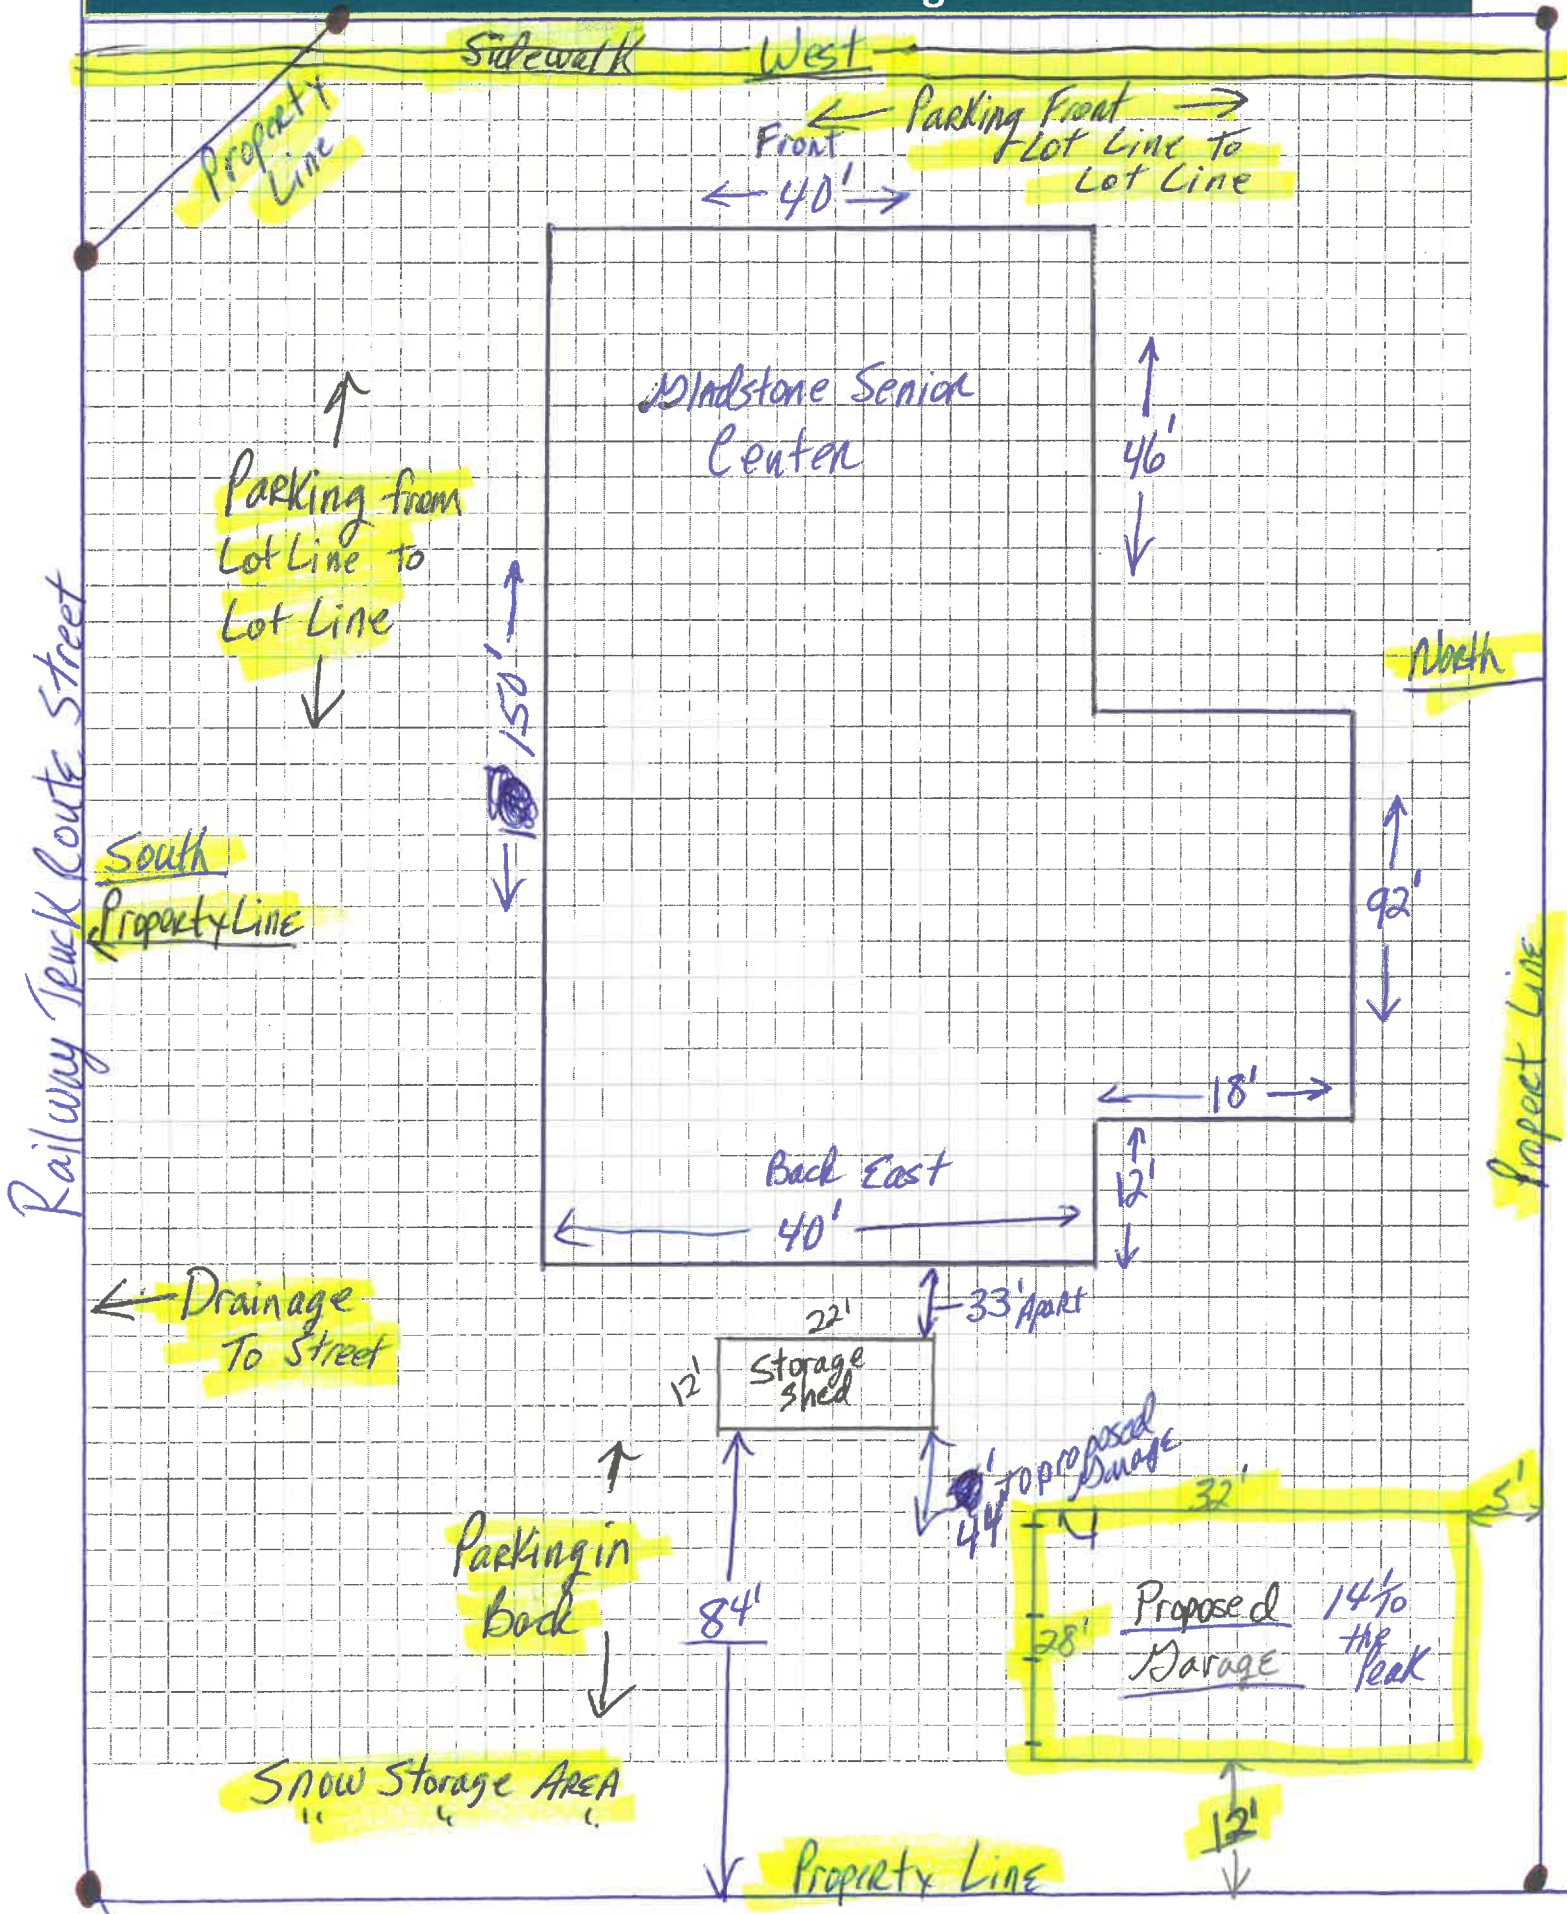 Sidewalk West
Property
Line
← Parking Front →
Front
Lot Line To
Lot Line
← 40' →
Senior
Center
46'
Parking from
Lot Line to
Lot Line
150'
North
Railway Truck Route Street
South
Property Line
92'
Propert Line
← 18' →
Back East
12'
← 40' →
← Drainage
To Street
33' Apart
22'
12'
Storage
Shed
44' to proposed
Garage
32'
5'
Parking in
Back
84'
28'
Proposed
Garage
14' To
the
Peak
Snow Storage AREA
" " "
12'
Property Line